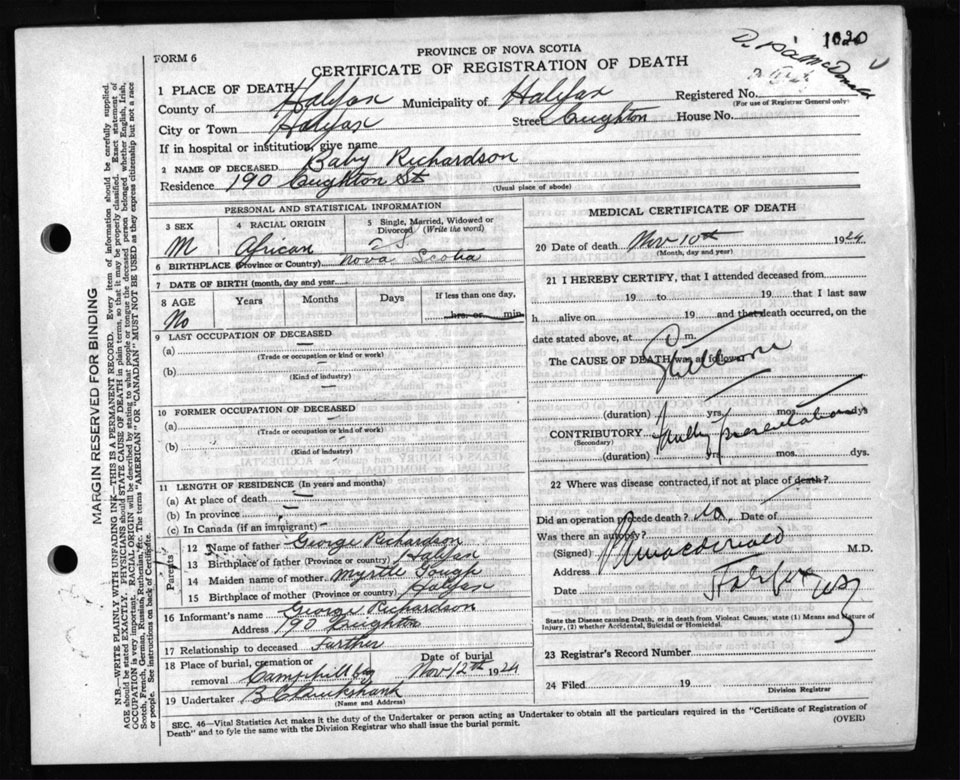 1020
FORM 6
PROVINCE OF NOVA SCOTIA
CERTIFICATE OF REGISTRATION OF DEATH
1 PLACE OF DEATH
County of Halifax Municipality of Halifax Registered No.
(For use of Registrar General only)
City or Town Halifax Street Creighton House No.
If in hospital or institution, give name
2 NAME OF DECEASED Baby Richardson
Residence 190 Creighton St (Usual place of abode)
PERSONAL AND STATISTICAL INFORMATION
3 SEX M
4 RACIAL ORIGIN African
5 Single, Married, Widowed or Divorced (Write the word) S.
6 BIRTHPLACE (Province or Country) Nova Scotia
7 DATE OF BIRTH (month, day and year)
8 AGE Years Months Days If less than one day,
No hrs. or min.
9 LAST OCCUPATION OF DECEASED
(a)
(Trade or occupation or kind or work)
(b)
(Kind of industry)
10 FORMER OCCUPATION OF DECEASED
(a)
(Trade or occupation or kind of work)
(b)
(Kind of industry)
11 LENGTH OF RESIDENCE (In years and months)
(a) At place of death
(b) In province
(c) In Canada (if an immigrant)
Parents
12 Name of father George Richardson
13 Birthplace of father (Province or country) Halifax
14 Maiden name of mother Myrtle Gough
15 Birthplace of mother (Province or country) Halifax
16 Informant's name George Richardson
Address 190 Creighton
17 Relationship to deceased Farther
18 Place of burial, cremation or Date of burial
removal Camphill Nov 12th 1924
19 Undertaker B Cruikshank
(Name and Address)
MEDICAL CERTIFICATE OF DEATH
20 Date of death Nov 10th 1924
(Month, day and year)
21 I HEREBY CERTIFY, that I attended deceased from
19 to 19 that I last saw
h alive on 19 and that death occurred, on the
date stated above, at m.
The CAUSE OF DEATH was as follows:
Stillborn
(duration) yrs. mos. dys
CONTRIBUTORY Faulty presentation
(Secondary)
(duration) yrs. mos. dys.
22 Where was disease contracted, if not at place of death?
Did an operation precede death? No, Date of
Was there an autopsy?
(Signed) Macdonald M.D.
Address
Date Halifax NS
State the Disease causing Death, or in death from Violent Causes, state (1) Means and Nature of
Injury, (2) whether Accidental, Suicidal or Homicidal.
23 Registrar's Record Number
24 Filed 19
Division Registrar
SEC. 46—Vital Statistics Act makes it the duty of the Undertaker or person acting as Undertaker to obtain all the particulars required in the "Certificate of Registration of
Death" and to fyle the same with the Division Registrar who shall issue the burial permit.
(OVER)
MARGIN RESERVED FOR BINDING
N.B.—WRITE PLAINLY WITH UNFADING INK—THIS IS A PERMANENT RECORD. Every item of information should be carefully supplied.
AGE should be stated EXACTLY. PHYSICIANS should STATE CAUSE OF DEATH in plain terms, so that it may be properly classified. Exact statement of
OCCUPATION is very important. RACIAL ORIGIN will be described by stating to what people or tongue the deceased person belonged whether English, Irish,
Scotch, French, German, Russian, Ruthenian, etc. The terms "AMERICAN" OR "CANADIAN" MUST NOT BE USED as they express citizenship but not a race
or people. See instructions on back of Certificate.